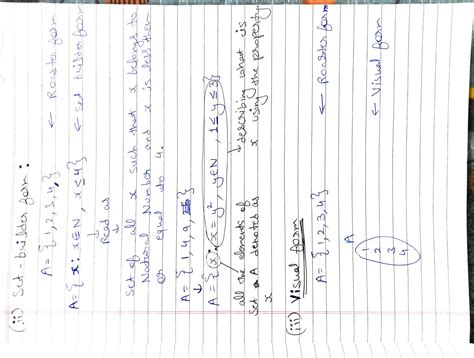 (ii) Set-builder form:
A = {1,2,3,4,} ← Roaster form
A = {x: x∈N, x≤4} ← Set bilder form
Read as
Set of all x such that x belongs to
Natural Number and x is less than
or equal to 4.
A = {1,4,9,}
A = {(x): x=y², y∈N, 1≤y≤3}
all the elements of
Set A denoted as
x
describing what is
x using the property
(iii) Visual form
A = {1,2,3,4} ← Roaster form
A
1
2
3
4
← Visual form